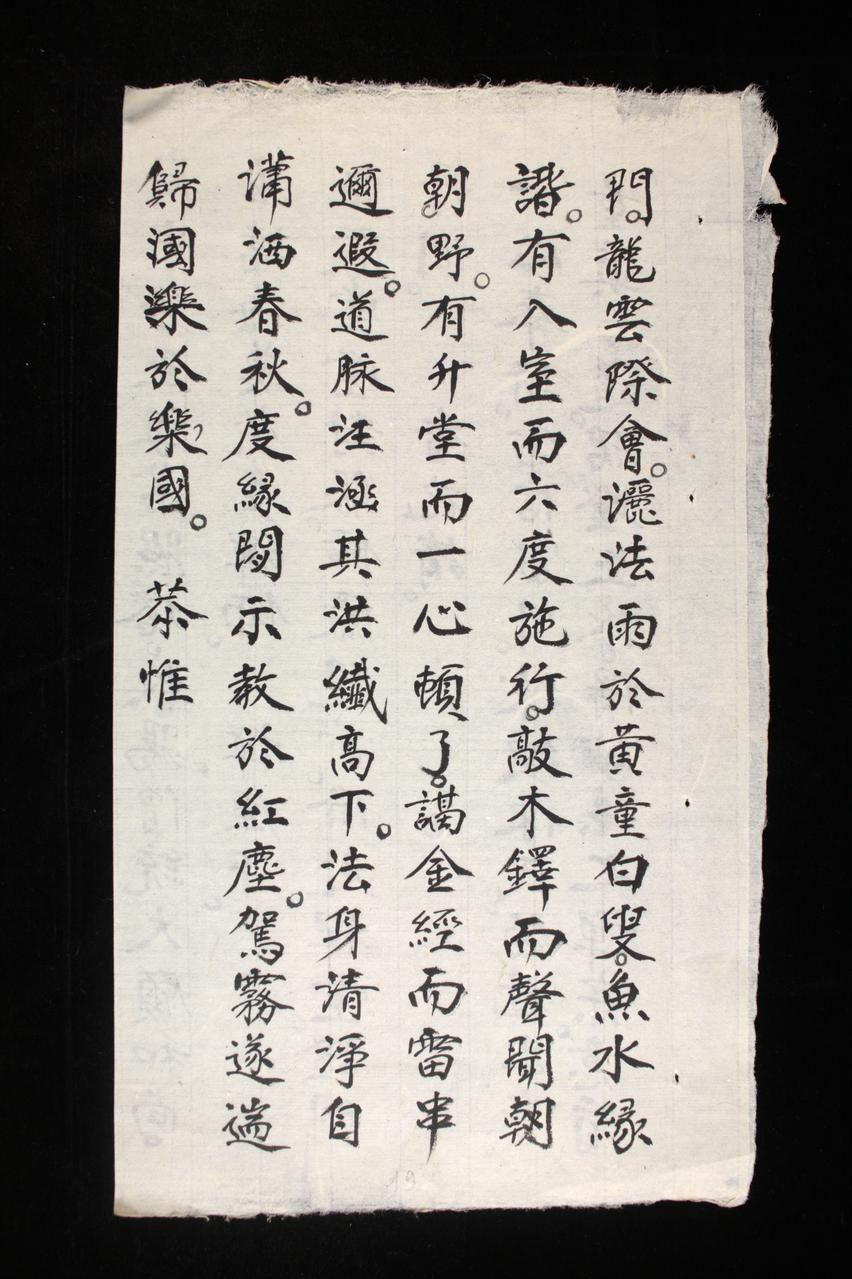 門。龍雲際會。灑法雨於黃童白叟。魚水緣
諧。有入室而六度施行。敲木鐸而聲聞朝
朝野。有升堂而一心頓了。謁金經而雷串
邇遐。道脉汪涵其洪纖高下。法身清淨自
瀟洒春秋。度緣開示教於紅塵。駕霧遂遄
歸國樂於樂國。 恭惟
19